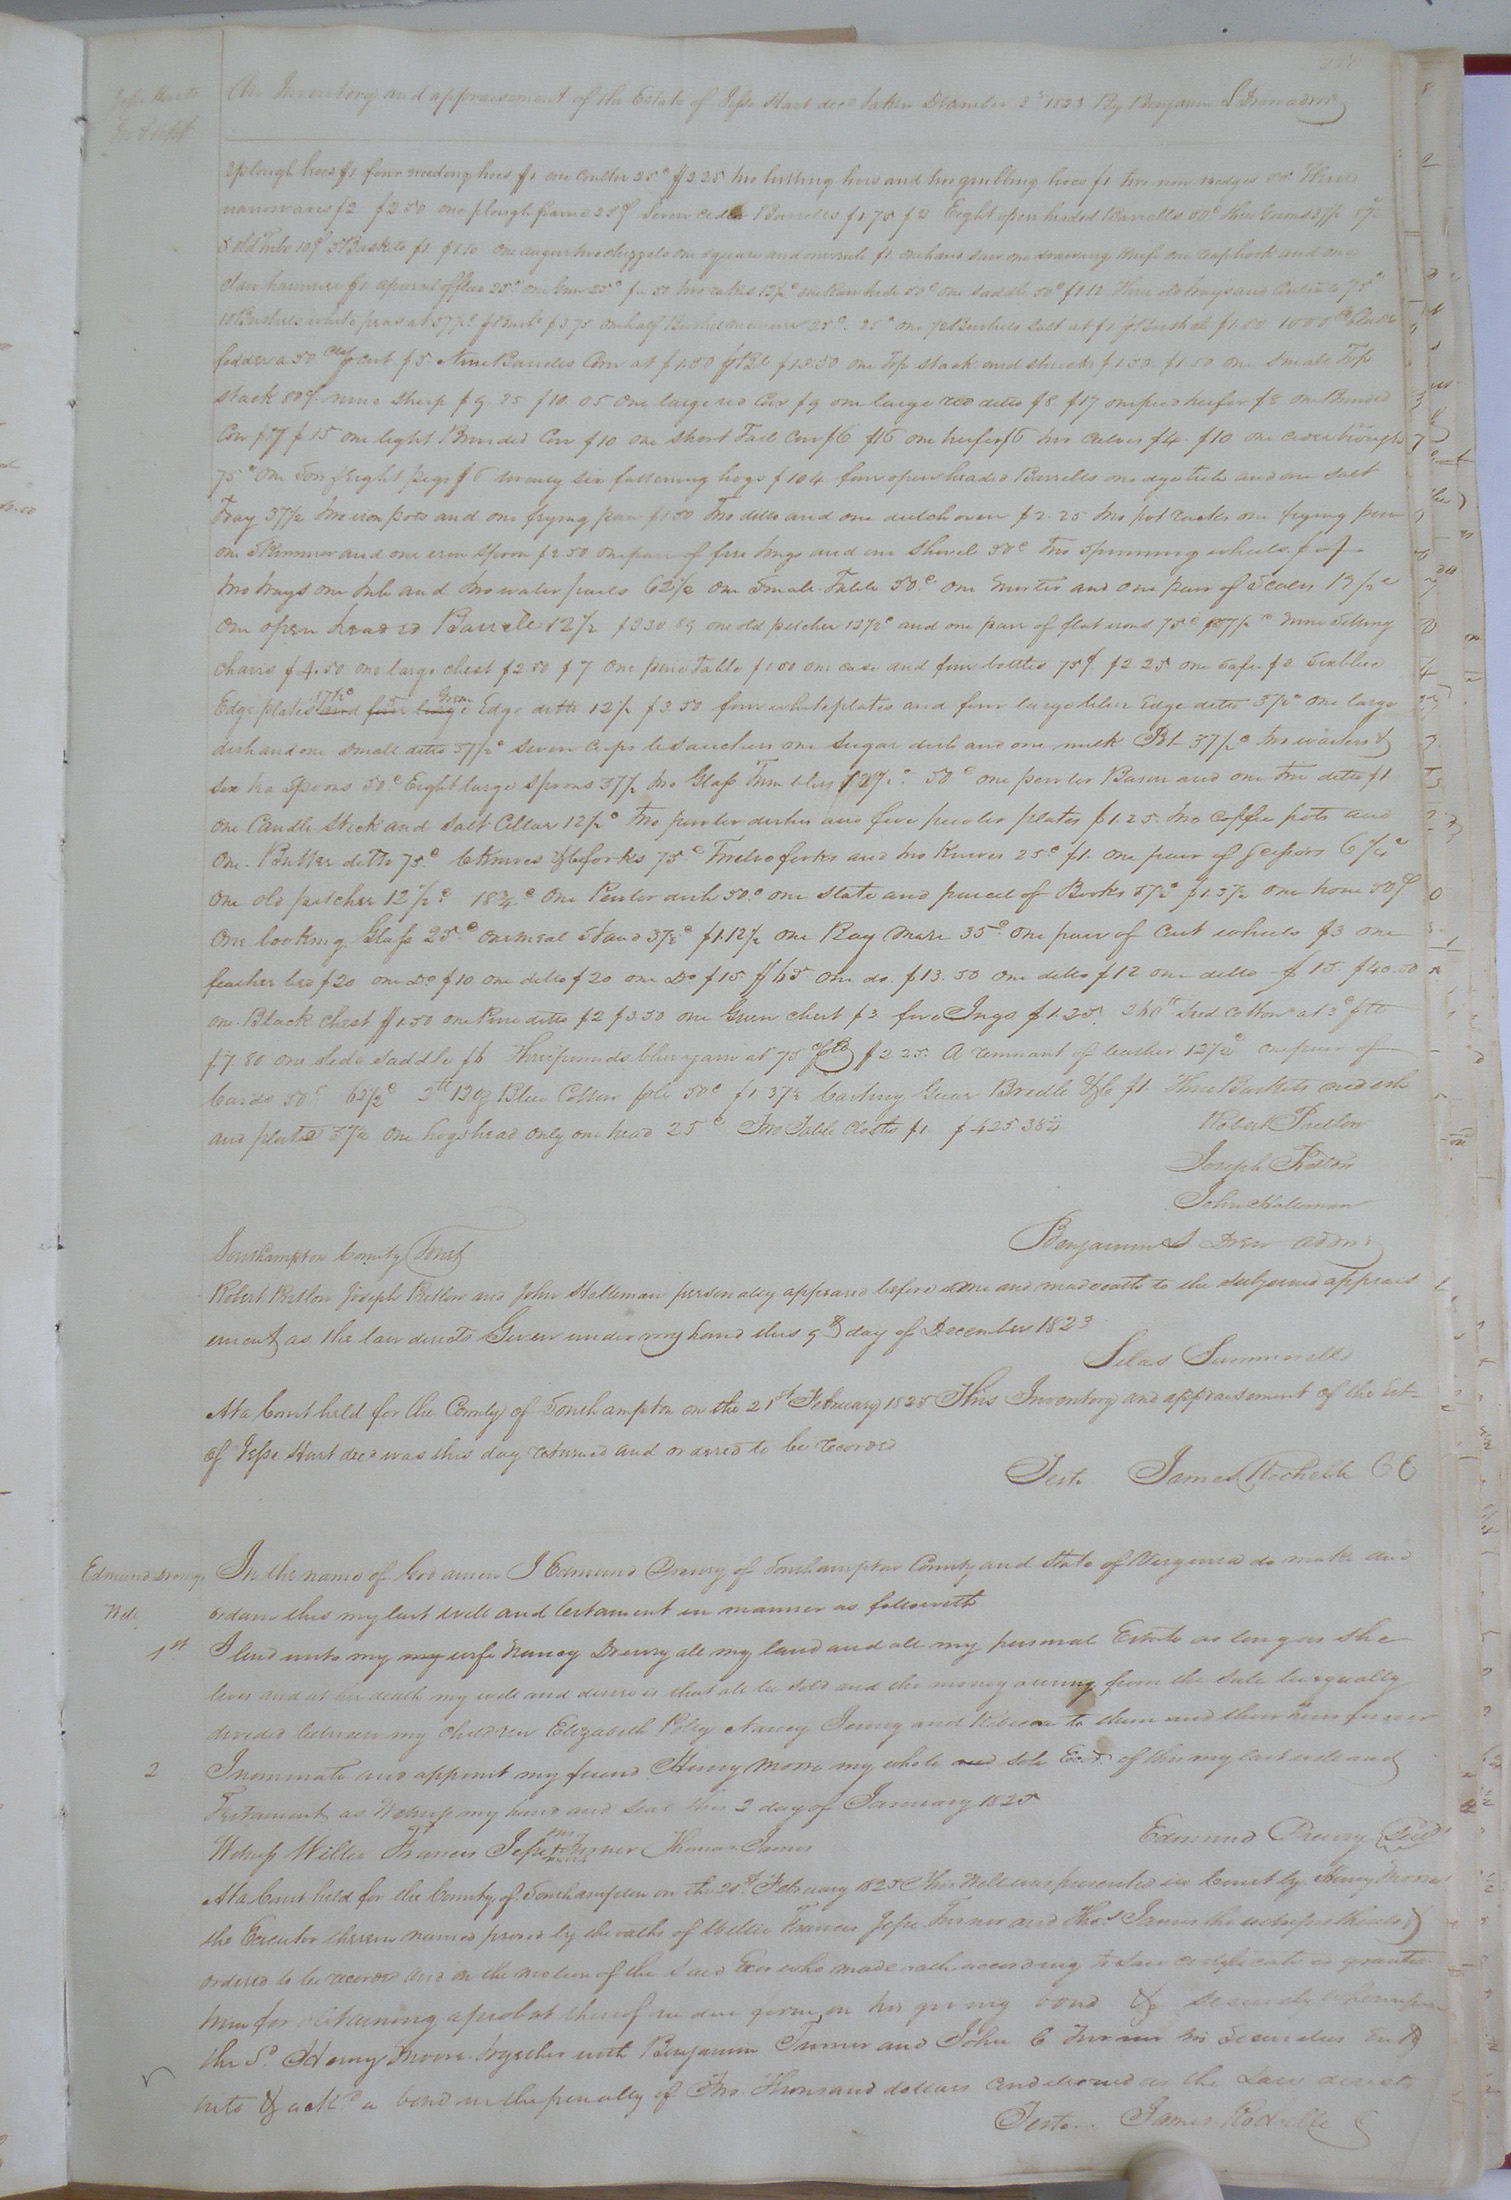 Jesse Hart
An Inventory and appraisement of the Estate of Jesse Hart decd taken December 3d 1823 By Benjamin S Drew admr
2 plough hoes $1 four weeding hoes $1 one coulter 25c $2.25 two hilling hoes and two grubbing hoes $1 two iron wedges 50c Three
narrow axes $2 $2 50 one plough frame 25c Seven cedar Barrells $1.75 $2 Eight open headed Barrells 50c three Gums 37½
5 old Tubs 10c 5 Baskets $1 $1 10 one auger two chizzels one square and one rule $1 one hand saw one drawing knife one reaphook and one
claw hammer $1 a parcel of flax 25c one Gun 25c two rakes 12½c one Raw hide 50c one saddle 50c three old trays and 75c
10 Bushels white peas at 37½c $ Bush $3 75 one half Bushel measure 25c 25c one ½ Bushels salt at $1 $ Bushel $1.50 1000 lb blade
fodder a 50 cts cwt $5 Nine Barrels Corn at $1.50 $ Bl $13.50 one Top stack and shucks $1.50 $1.50 one small Top
stack 80c nine sheep $9 25 $10 05 one large red Cow $9 one large red ditto $8 $17 one pied heifer $8 one Brinded
Cow $7 $15 one light Brinded Cow $10 one short Tail Cow $6 $16 one heifer $6 two calves $4 $10 one cider trough
75c one Sow & eight pigs $6 twenty six fattening hogs $104 four open headed Barrells one dye tub and one salt
Tray 37½ two iron pots and one frying pan $1.50 Two ditto and one dutch oven $2.25 two pot racks one frying pan
one Skimmer and one iron spoon $2.50 one pair of fire tongs and one shovel 50c two spinning wheels
two trays one tub and two water pails 62½ one Small Table 50c one and one pair of Scales 12½c
one open headed Barrele 12½ $2.30 one old pitcher 12½c and one pair of flat irons 75c 87½c nine Sitting
chairs $4.50 one large chest $2 50 $7 one pine Table $1.50 one case and four bottles 75c $2 25 one Safe $3 Six blue
Edge plates 37½c and four large Green Edge ditto 12½ $3.50 four white plates and four large blue Edge ditto 37½c one large
dish and one small ditto 37½c seven cups & 6 saucers one sugar dish and one milk Pot 37½c two waiters &
six tea Spoons 50c Eight large spoons 37½ two Glass Tumblers 12½c 50c one pewter Bason and one Tin ditto $1
one Candle stick and Salt Cellar 12½c Two pewter dishes and five pewter plates $1.25 two Coffee pots and
one Butter ditto 75c 6 knives & 6 forks 75c Twelve forks and two Knives 25c $1 one pair of Scissors 6¼c
one old pitcher 12½c 18¾c one Pewter dish 50c one slate and parcel of Books 87½c $1.37½ one hone 50c
one looking Glass 25c one meal Stand 37½c $1.12½ one Bay Mare 35c one pair of Cart wheels $3 one
feather bed $20 one Do $10 one ditto $20 one Do $15 $65 one do. $13.50 one ditto $12 one ditto $15 $40.50
one Black chest $1.50 one Pine ditto $2 $3.50 one Green chest $3 five Jugs $1.25 260lb seed Cotton at 3c $ lb
$7.80 one side saddle $6 three pounds blue yarn at 75c $ lb $2.25 A remnant of leather 12½c one pair of
Cards 50c 62½c 2lb 12 oz Blue Cotton 50c $1 37½ Carting Gear Bridle &c $1 Three Baskets one dish
and plate 37½ one hogshead only one head 25c Two Table Cloths $1 $425 38¼
Robert Pretlow
Joseph Pretlow
John Holleman
Benjamin S. Drew admr
Southampton County Towit
Robert Pretlow Joseph Pretlow and John Holleman personaley appeared before me and made oath to the subjoined apprais
ement as the law directs Given under my hand this 9th day of December 1823
Silas Summerell
At a Court held for the County of Southampton on the 21st February 1825 This Inventory and appraisement of the Est
of Jesse Hart decd was this day returned and ordered to be recorded
Teste James Rochelle CC
Edmund Drewry In the name of God amen I Edmund Drewry of Southampton County and State of Virginia do make and
Will ordain this my last will and testament in manner as followeth
1st I lend unto my my wife Nancy Drewry all my land and all my personal Estate as long as she
lives and at her death my will and desire is that all be sold and the money arising from the sale be equally
divided between my children Elizabeth Polly Nancy and Rebecca to them and their heirs forever
2 I nominate and appoint my friend Henry Moore my whole and sole Exr. of this my last will and
Testament as Witness my hand and Seal this 2 day of January 1825
Edmund Drewry Seal
Witness Willie Francis Jesse his mark Turner Thomas James
At a Court held for the County of Southampton on the 21st February 1825 This Will was presented in Court by Henry Moore
the Executor therein named proved by the oaths of Willie Francis Jesse Turner and Thos James the witnesses thereto &
ordered to be recorded and on the motion of the said Exor who made oath according to Law certificate is granted
him for obtaining a probat thereof in due form on his giving bond & security whereupon
the Sd. Henry Moore together with Benjamin Turner and John C Turner his Securities Entd
into & ackd a bond in the penalty of Two Thousand dollars conditioned as the Law directs
Teste James Rochelle C